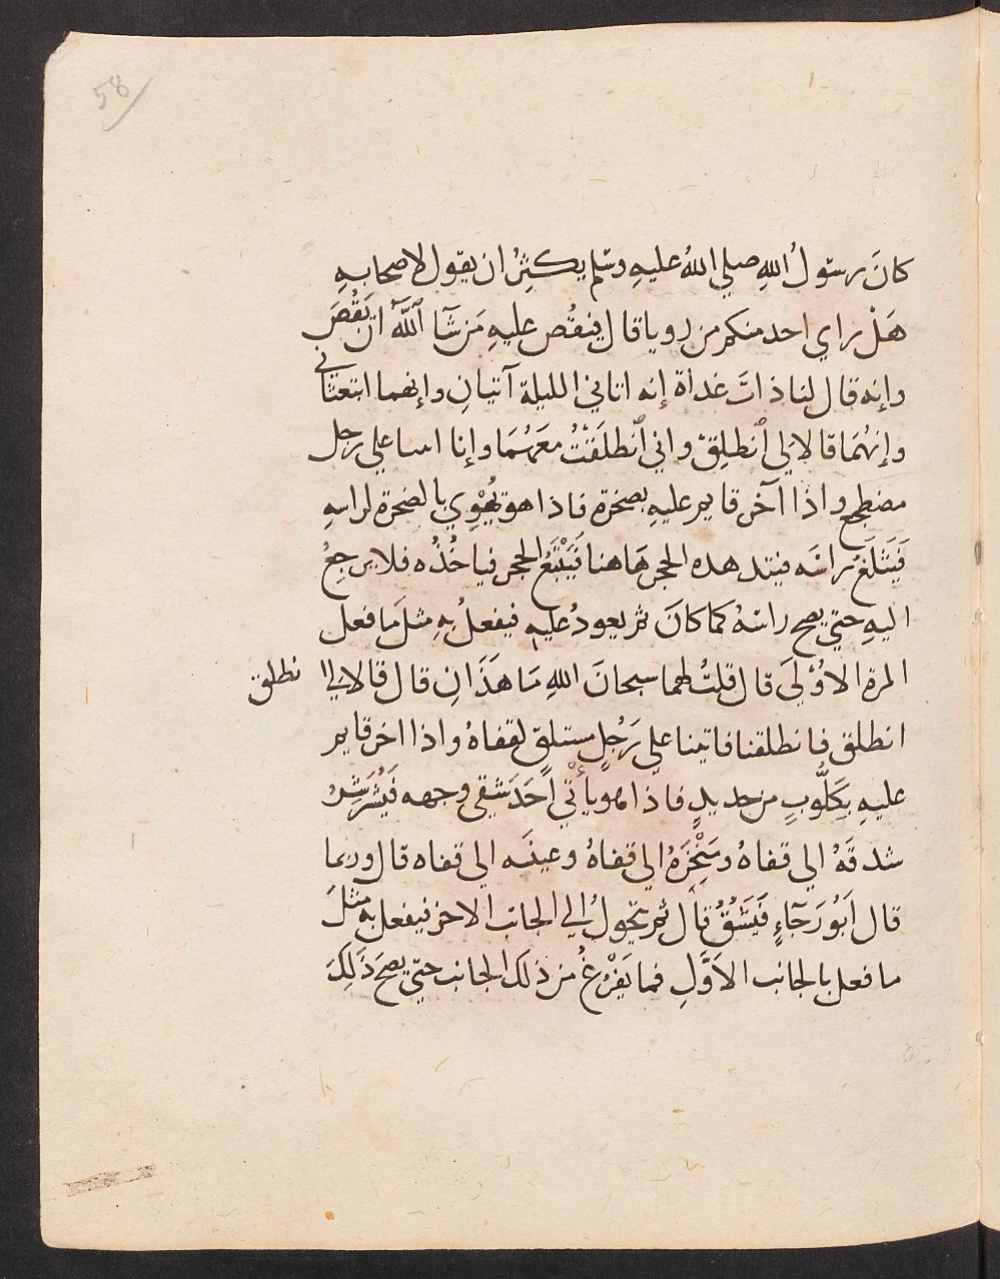 58
كانَ رسَولُ اللهِ صلي اللهُ عليهِ وسَلم يكثِرُ ان يقول لاصحابهِ
هَلْ راي احد منكم من رويا قال فيقُص عليهِ مَن شآ اللهُ ان يَقُصَ
وإنه قال لنا ذاتَ غداة إنه اتاني الليلة آتيانِ وإنهما ابتعثاني
وإنهُمَا قالا لي اُنطلِقْ واني اُنطلَقْتُ معَهُمَا وإنا اتينا علي رجل
مضطجع واذا آخر قايم عليهِ بصخرة فاذا هو يُهْوِي بالصخرة لراسهِ
فَيَثلَغُ راسَه فيتدهده الحجر هَاهنا فَيَتْبَعُ الحجر فياخُذُه فلا يرجعُ
اليهِ حتي يصح راسَهُ كما كانَ ثم يعودُ عليهِ فيفعلُ بهِ مثلَ مَا فعل
المرة الاُوْلَي قال قلتُ لهما سبحانَ اللهِ مَا هَذَانِ قال قالا لي ا نطلق
انطلق فانطلقنا فاتينا علي رَجُلٍ مستلقٍ لقفاهُ واذا اخر قايم
عليهِ بِكَلُّوبٍ من حديدٍ فاذا هو يأتي احَدَ شقي وجهه فَيُشَرشِرُ
شدقَهُ الي قفاهُ ومَنْخِرَهُ الي قفاهُ وعينَه الي قفاه قال وربما
قال اَبُو رَجَاءٍ فَيَشُقُ قال ثم يتحولُ الي الجانب الاخر فيفعل به مثلَ
ما فعل بالجانب الاَوَّلِ فما يَفْرُغُ من ذلك الجانب حتي يصحَ ذَلِكَ